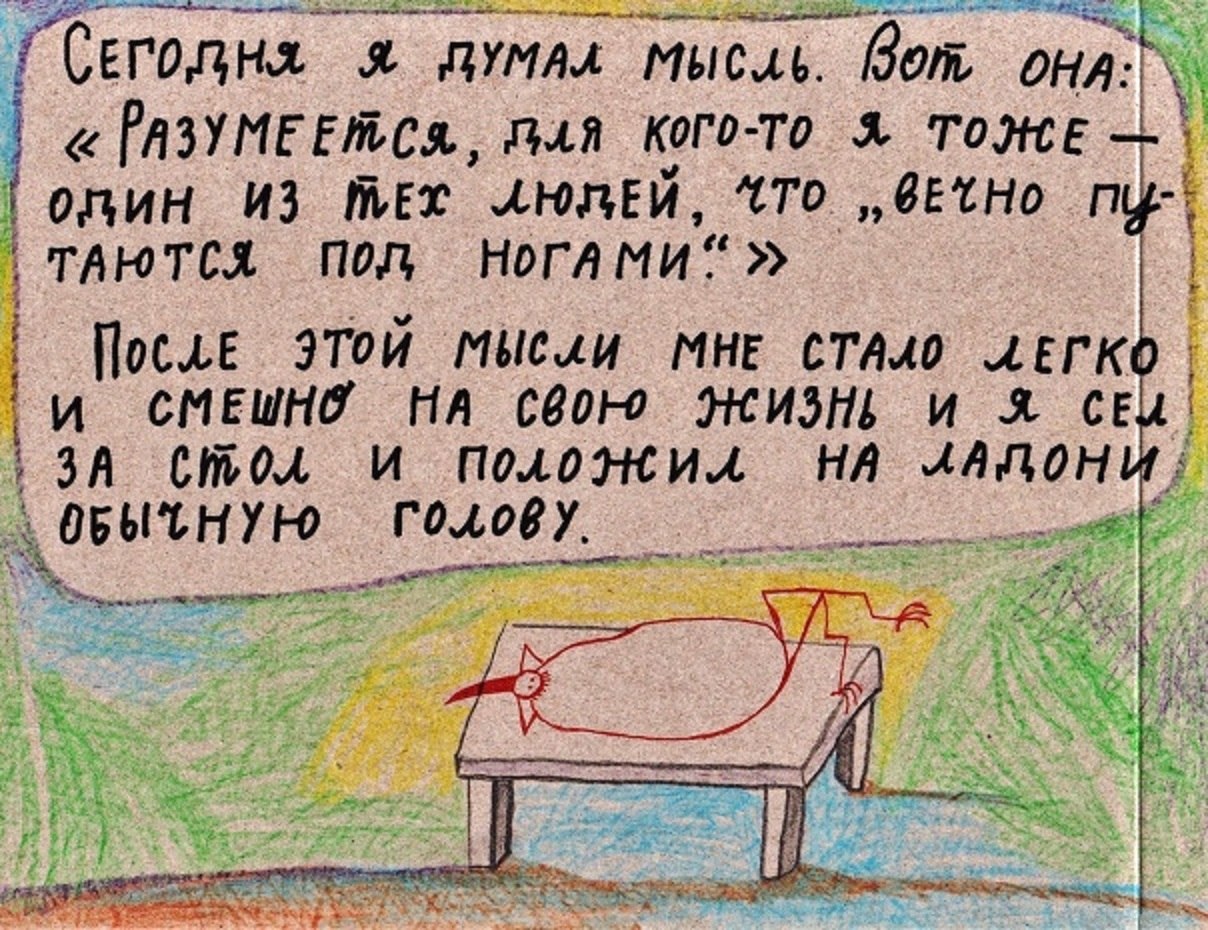 Сегодня я думал мысль. Вот она:
«Разумеется, для кого-то я тоже —
один из тех людей, что „вечно пу-
таются под ногами“.»
После этой мысли мне стало легко
и смешно на свою жизнь и я сел
за стол и положил на ладони
обычную голову.